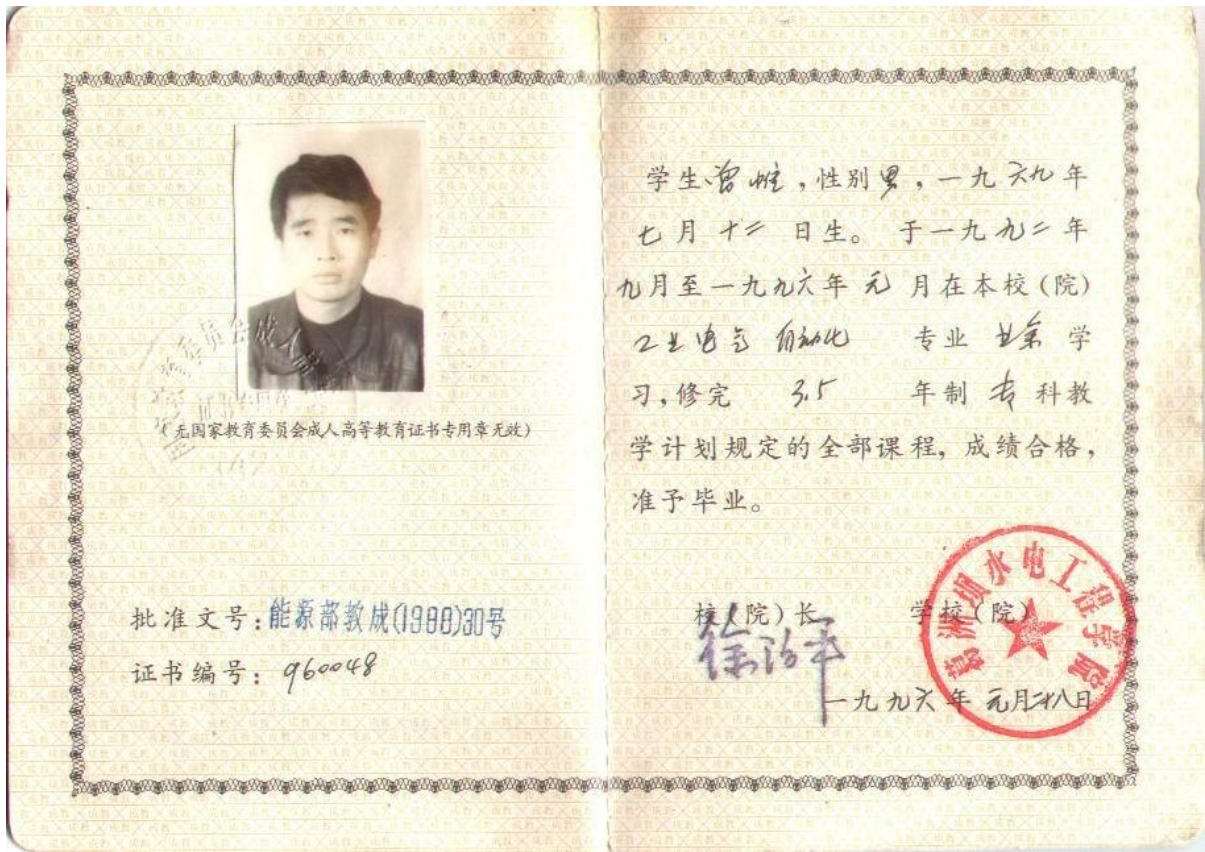 (无国家教育委员会成人高等教育证书专用章无效)
批准文号：能源部教成(1988)30号
证书编号：960048
学生曾 ，性别男，一九六九年
七月十二日生。于一九九二年
九月至一九九六年元月在本校(院)
工业电气自动化 专业 业余 学
习，修完 3.5 年制 专 科教
学计划规定的全部课程，成绩合格，
准予毕业。
校(院)长 学校(院)
徐治平
葛洲坝水电工程学院
一九九六年元月二十八日